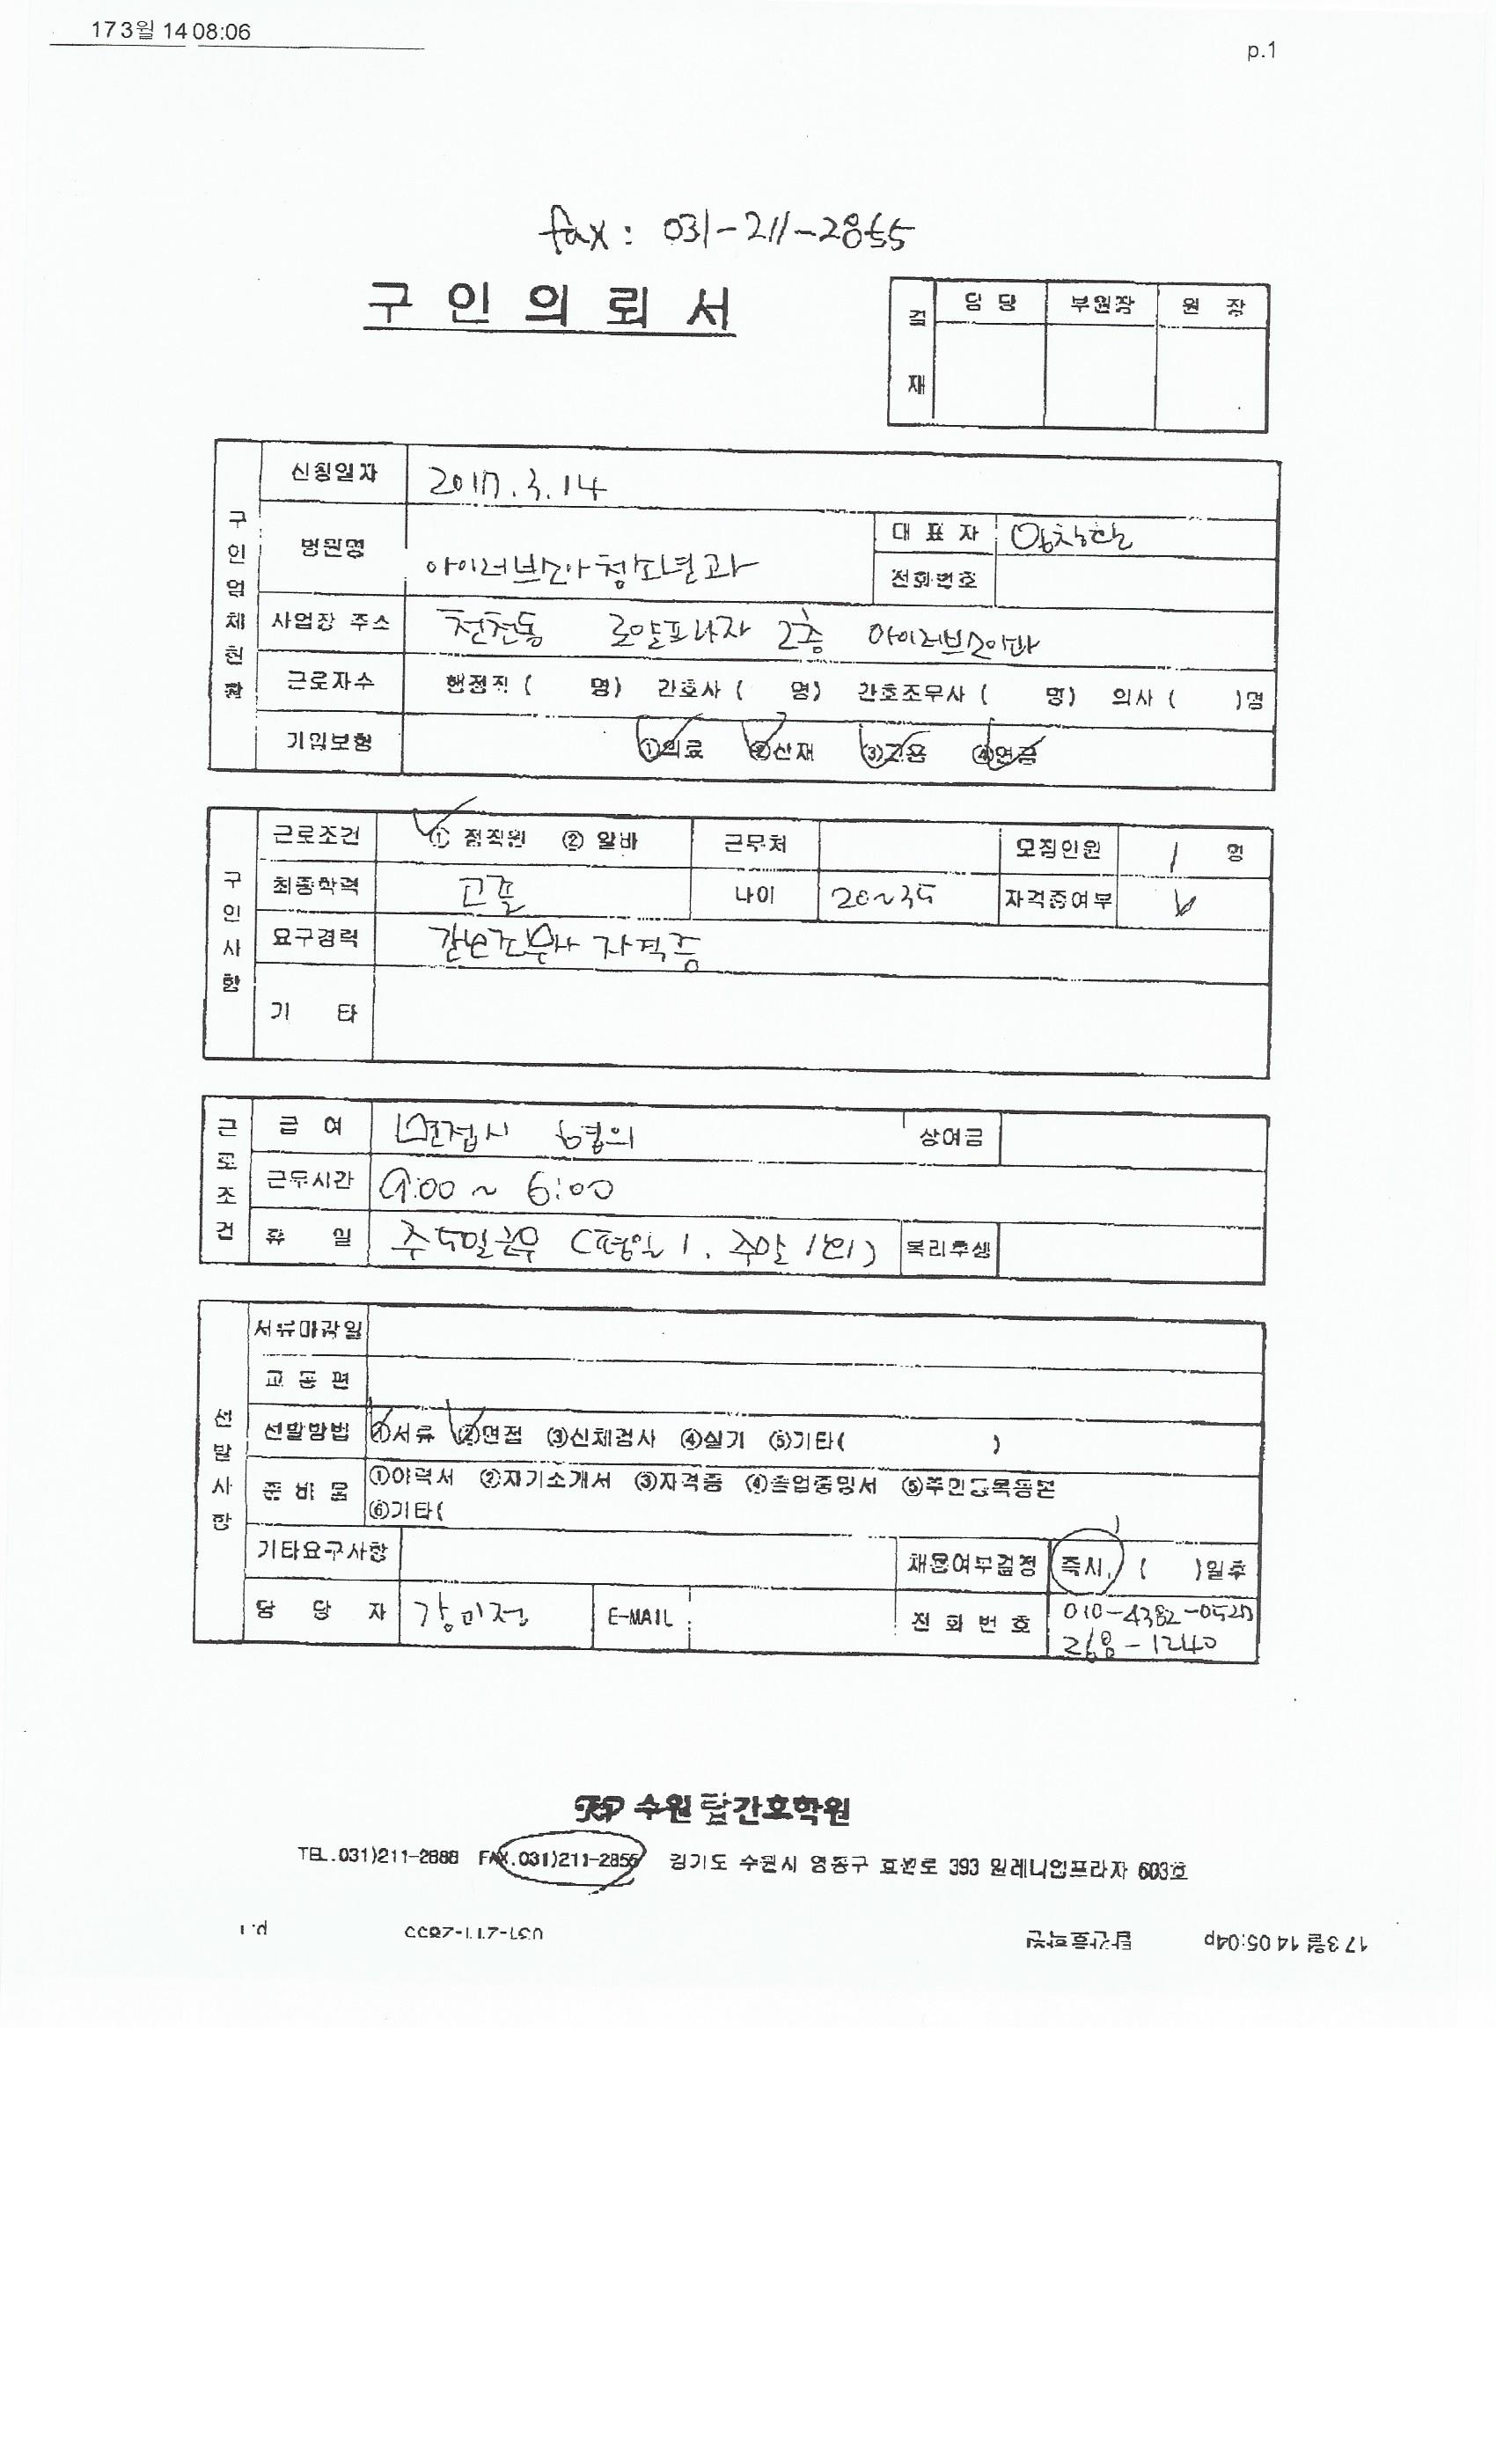 17 3월 14 08:06
p.1
fax : 031-211-2855
구 인 의 뢰 서
결 재
담 당 부원장 원 장
구 인 업 체 현 황
신청일자 2017.3.14
병원명 아이러브소아청소년과
대 표 자
전화번호
사업장 주소 천천동 로얄프라자 2층 아이러브소아과
근로자수 행정직 ( 명) 간호사 ( 명) 간호조무사 ( 명) 의사 ( )명
가입보험 ①의료 ②산재 ③고용 ④연금
구 인 사 항
근로조건 ① 정직원 ② 알바 근무처 모집인원 1 명
최종학력 고졸 나이 20~35 자격증여부
요구경력 간호조무사 자격증
기 타
근 로 조 건
급 여 면접시 협의 상여금
근무시간 9:00 ~ 6:00
휴 일 주5일근무 (평일 1. 주말 1회) 복리후생
선 발 사 항
서류마감일
교 통 편
선발방법 ①서류 ②면접 ③신체검사 ④실기 ⑤기타( )
준 비 물 ①이력서 ②자기소개서 ③자격증 ④졸업증명서 ⑤주민등록등본
⑥기타( )
기타요구사항 채용여부결정 즉시, ( )일후
담 당 자 강미정 E-MAIL : 전 화 번 호 010-4382-0527
268-1240
TOP 수원 탑간호학원
TEL.031)211-2888 FAX.031)211-2855 경기도 수원시 영통구 효원로 393 밀레니엄프라자 603호
17 3월 14 05:04p 탑간호학원 031-211-2855 p.1